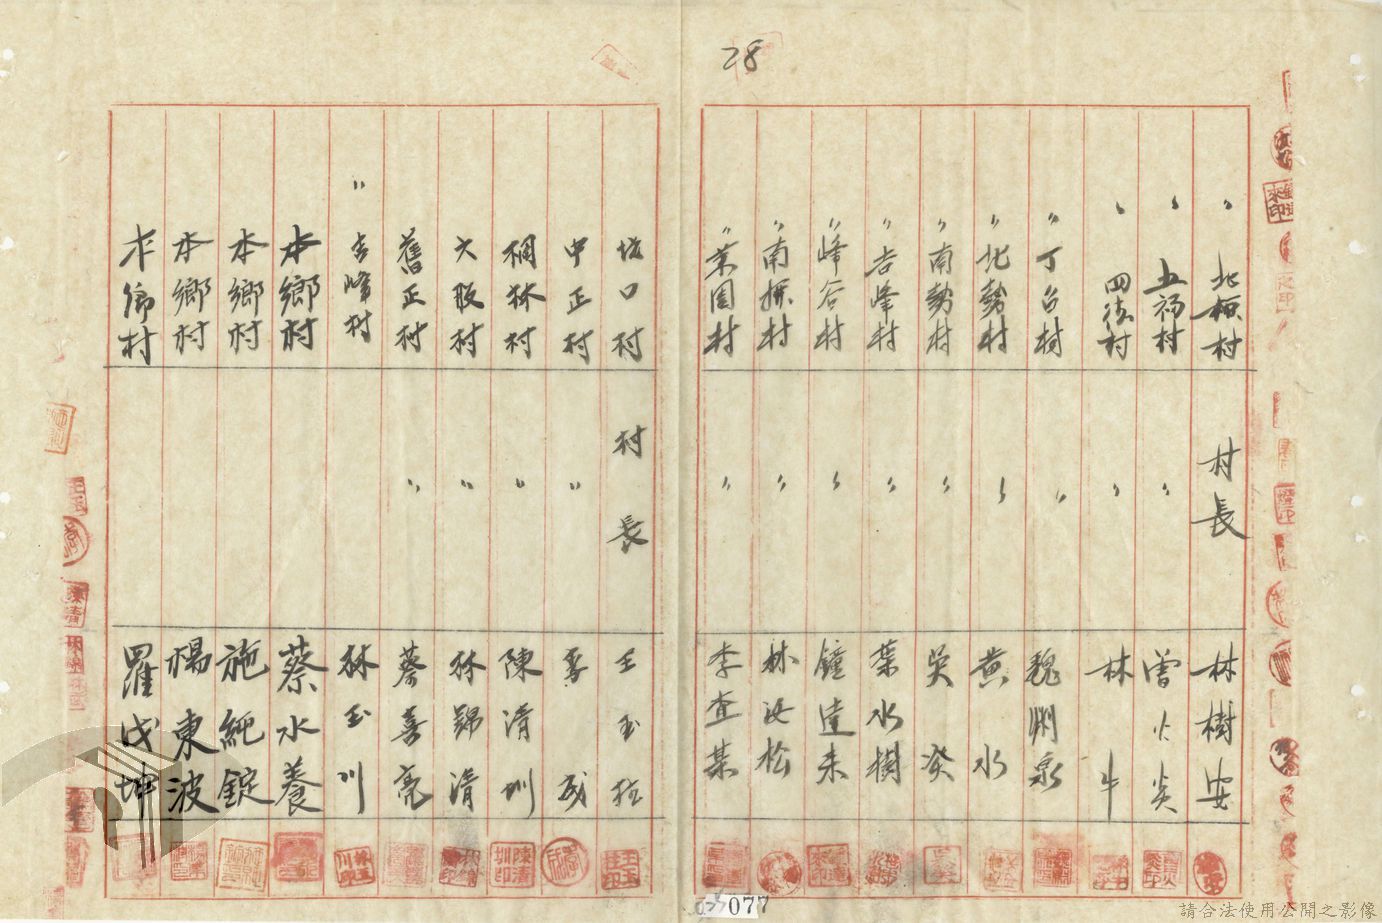 28
〃 北柳村 村長 林樹安
〃 五福村 〃 曾火炎
〃 四德村 〃 林牛
〃 丁台村 〃 魏州泉
〃 北勢村 〃 黄水
〃 南勢村 〃 吳癸
〃 吉峰村 〃 葉水樹
〃 峰谷村 〃 鐘達来
〃 南柳村 〃 林汝松
〃 菜園村 〃 李查某
坑口村 村長 王玉
中正村 〃 李成
桐林村 〃 陳清圳
大股村 〃 林錦清
舊正村 〃 蔡喜亮
〃 吉峰村 林玉川
本鄉村 蔡水養
本鄉村 施繩錠
本鄉村 楊東波
本鄉村 羅戊坤
077
請合法使用公開之影像